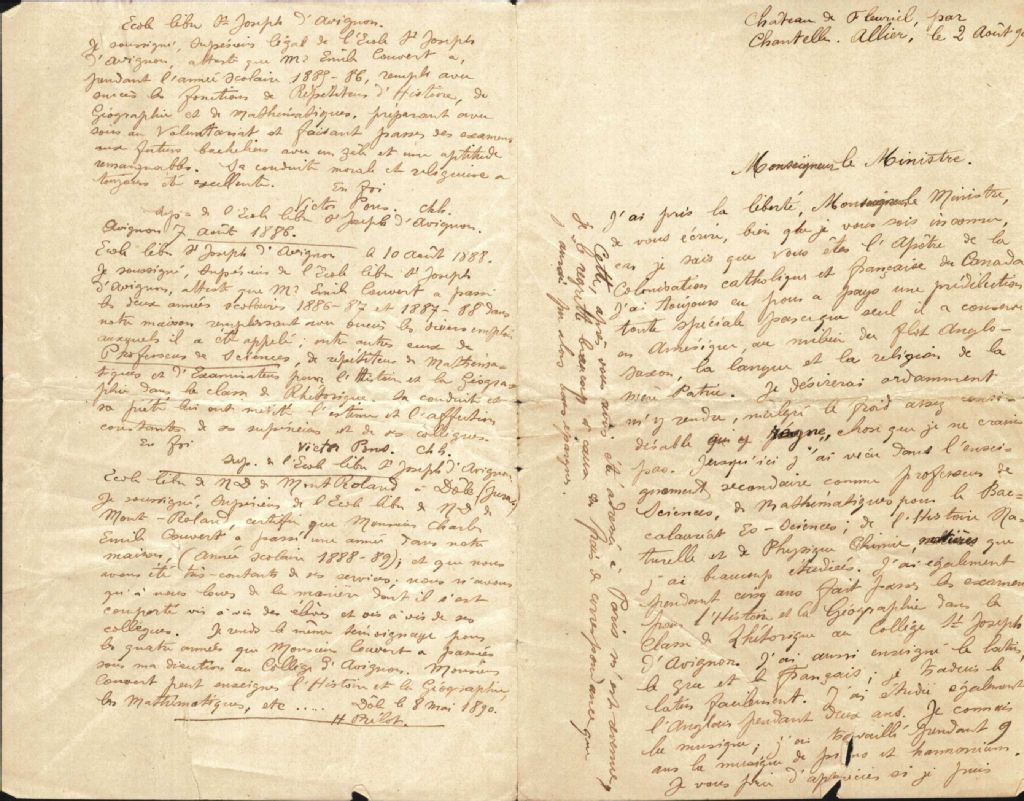 Ecole libre St Joseph d'Avignon.
Je soussigné, Supérieur légal de l'Ecole St Joseph
d'Avignon, atteste que Mr Emile Couvert a,
pendant l'année scolaire 1885-86, rempli avec
succès les fonctions de Répétiteur d'Histoire, de
Géographie et de Mathématiques, préparant avec
soin au Volontariat et faisant passer des examens
aux futurs bacheliers avec un zèle et une aptitude
remarquables. Sa conduite morale et religieuse a
toujours été excellente.
En foi
Victor Chb.
Sup. de l'Ecole libre St Joseph d'Avignon.
Avignon 7 août 1886.
Ecole libre St Joseph d'Avignon le 10 août 1888.
Je soussigné, Supérieur de l'Ecole libre St Joseph
d'Avignon, atteste que Mr Emile Couvert a passé
les deux années scolaires 1886-87 et 1887-88 dans
notre maison remplissant avec succès les divers emplois
auxquels il a été appelé; entre autres ceux de
Professeur de Sciences, de répétiteur de Mathéma-
tiques et d'Examinateur pour l'Histoire et la Géogra-
phie dans la classe de Rhétorique. Sa conduite et
sa piété lui ont mérité l'estime et l'affection
constantes de ses supérieurs et de ses collègues.
En foi Victor Chb.
Sup. de l'Ecole libre St Joseph d'Avignon
Ecole libre de ND de Mont Roland à Dôle (Jura)
Je soussigné, Supérieur de l'Ecole libre de ND de
Mont-Roland, certifie que Monsieur Charles
Emile Couvert a passé une année dans notre
maison, (Année scolaire 1888-89); et que nous
avons été très-contents de ses services. nous n'avons
qu'à nous louer de la manière dont il s'est
comporté vis à vis des élèves et vis à vis de ses
collègues. Je rends le même témoignage pour
les quatre années que Monsieur Couvert a passées
sous ma direction au Collège d'Avignon. Monsieur
Couvert peut enseigner l'Histoire et la Géographie,
les Mathématiques, etc ..... Dôle le 8 mai 1890.
H Prélot.
Château de Fleuriel, par
Chantelle. Allier, le 2 Août 90
Monseigneur le Ministre.
J'ai pris la liberté, Monseigneur le Ministre,
de vous écrire, bien que je vous sois inconnu,
car je sais que vous êtes l'Apôtre de la
Colonisation catholique et française du Canada.
J'ai toujours eu pour ce pays une prédilection
toute spéciale parce que seul il a conservé
en Amérique, au milieu du flot Anglo-
saxon, la langue et la religion de la
mère Patrie. Je désirerai ardemment
m'y rendre, malgré le froid assez consi-
dérable qui y règne, chose que je ne crains
pas. Jusqu'ici j'ai vécu dans l'ensei-
gnement secondaire comme professeur de
Sciences, de Mathématiques, pour le Bac-
calauréat Es-Sciences; de l'Histoire Na-
turelle et de Physique Chimie, matières que
j'ai beaucoup étudiées. J'ai également
pendant cinq ans fait passer les examens
pour l'Histoire et la Géographie dans la
Classe de Rhétorique au Collège St Joseph
d'Avignon. J'ai aussi enseigné le latin,
le grec et le français; je traduis le
latin facilement. J'ai étudié également
l'Anglais pendant deux ans. Je connais
la musique; j'ai travaillé pendant 9
ans la musique de piano et harmonium.
Je vous prie d'apprécier si je puis
Cette après son avis été adressée à Paris m'est revenue;
je le regrette beaucoup à cause du peu de correspondance que
j'aurai pu alors épargner.